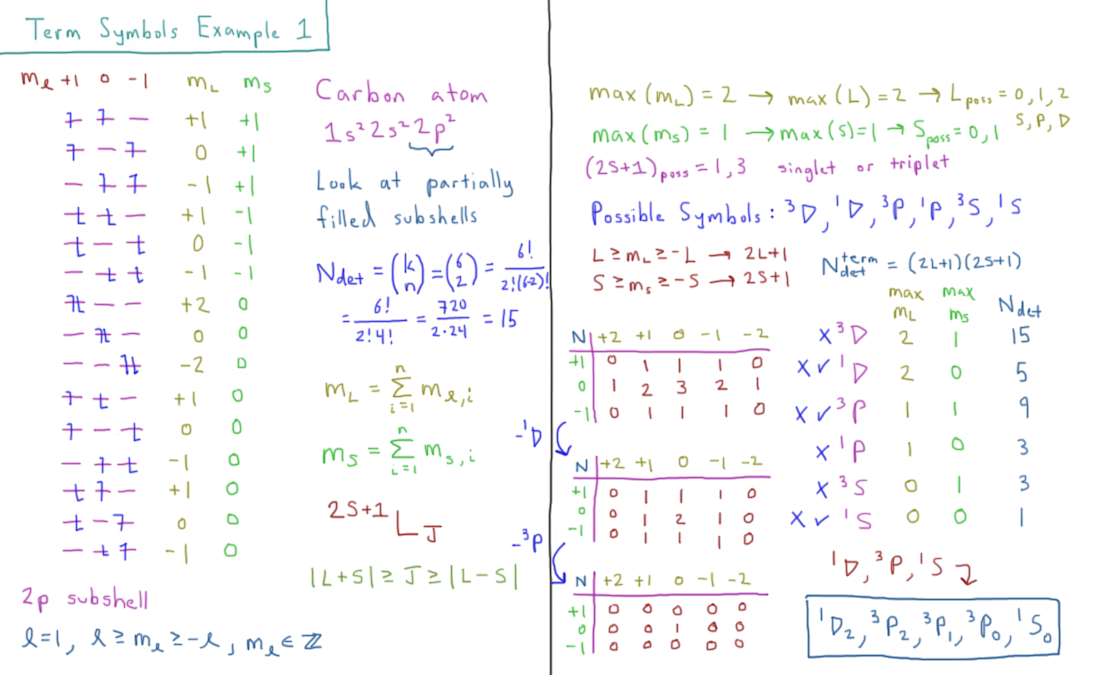 Term Symbols Example 1
mℓ +1 0 -1 mL ms
↿ ↿ — +1 +1
↿ — ↿ 0 +1
— ↿ ↿ -1 +1
⇂ ⇂ — +1 -1
⇂ — ⇂ 0 -1
— ⇂ ⇂ -1 -1
↿⇂ — — +2 0
— ↿⇂ — 0 0
— — ↿⇂ -2 0
↿ ⇂ — +1 0
↿ — ⇂ 0 0
— ↿ ⇂ -1 0
⇂ ↿ — +1 0
⇂ — ↿ 0 0
— ⇂ ↿ -1 0
2p subshell
ℓ=1, ℓ ≥ mℓ ≥ -ℓ, mℓ ∈ ℤ
Carbon atom
1s² 2s² 2p²
Look at partially
filled subshells
Ndet = (k n) = (6 2) = 6!/2!(6-2)!
= 6!/2!4! = 720/2·24 = 15
mL = Σ(i=1 to n) mℓ,i
ms = Σ(i=1 to n) ms,i
2S+1 L J
|L+S| ≥ J ≥ |L-S|
max(mL) = 2 → max(L) = 2 → Lposs = 0, 1, 2
S, P, D
max(ms) = 1 → max(S)=1 → Sposs = 0, 1
(2S+1)poss = 1, 3 singlet or triplet
Possible Symbols: ³D, ¹D, ³P, ¹P, ³S, ¹S
L ≥ mL ≥ -L → 2L+1
S ≥ ms ≥ -S → 2S+1
Ndet term = (2L+1)(2S+1)
N +2 +1 0 -1 -2
+1 0 1 1 1 0
0 1 2 3 2 1
-1 0 1 1 1 0
-¹D
N +2 +1 0 -1 -2
+1 0 1 1 1 0
0 0 1 2 1 0
-1 0 1 1 1 0
-³P
N +2 +1 0 -1 -2
+1 0 0 0 0 0
0 0 0 1 0 0
-1 0 0 0 0 0
max mL max ms Ndet
x ³D 2 1 15
x ✓ ¹D 2 0 5
x ✓ ³P 1 1 9
x ¹P 1 0 3
x ³S 0 1 3
x ✓ ¹S 0 0 1
¹D, ³P, ¹S
¹D₂, ³P₂, ³P₁, ³P₀, ¹S₀